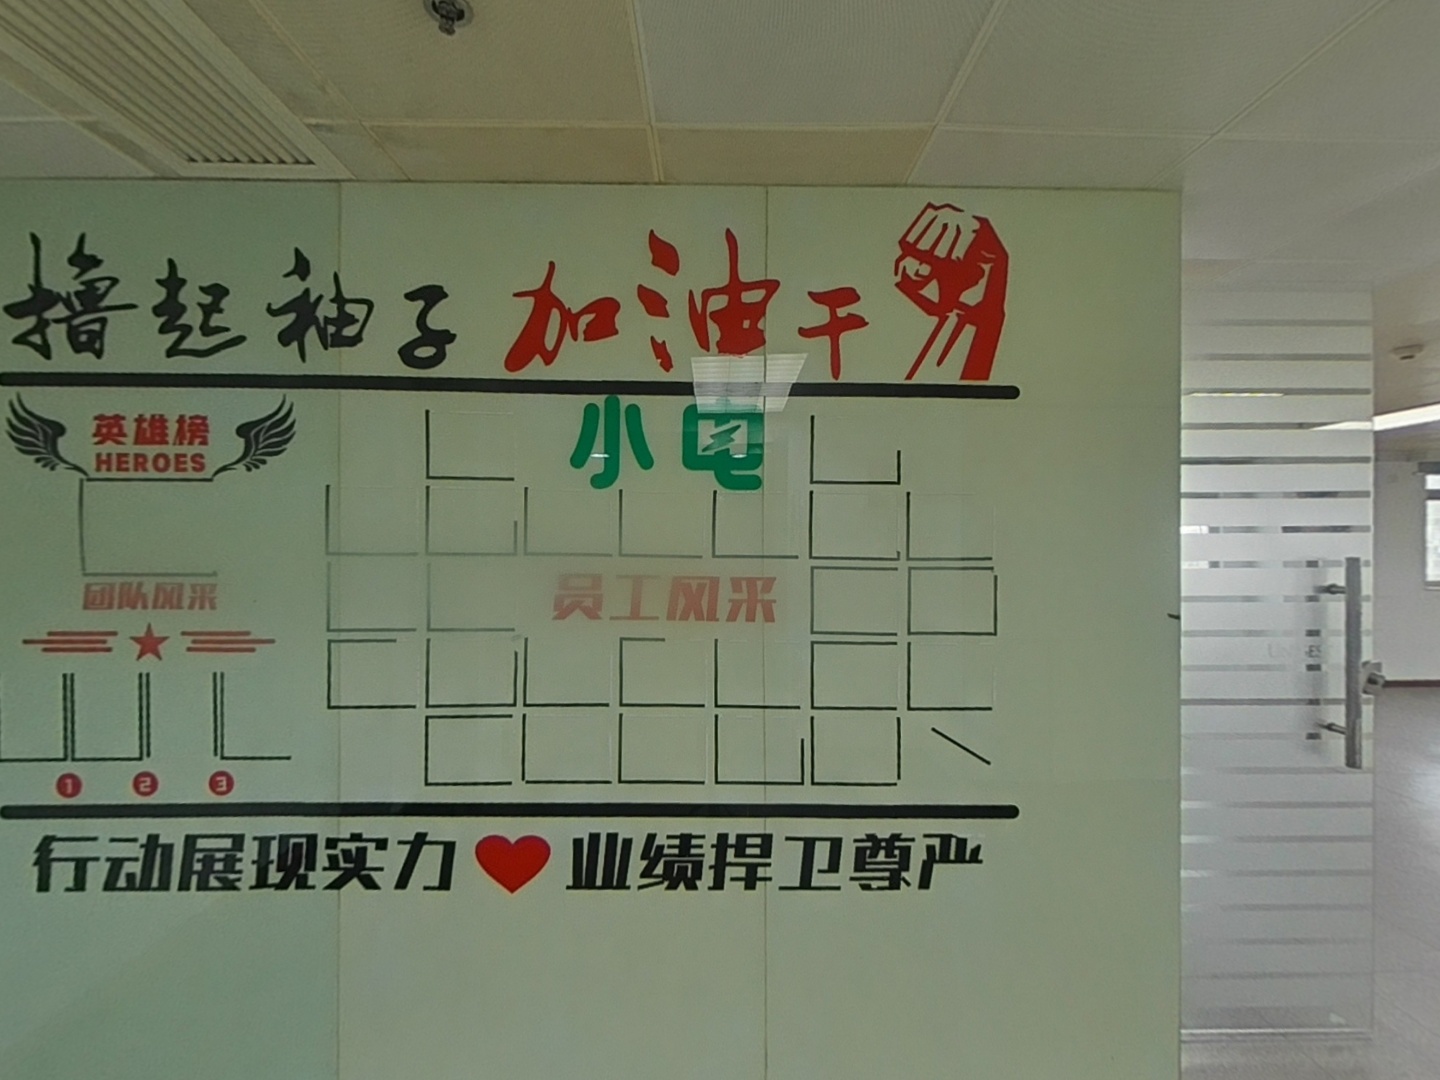 撸起袖子加油干
英雄榜
HEROES
小电
团队风采
员工风采
1 2 3
行动展现实力 业绩捍卫尊严